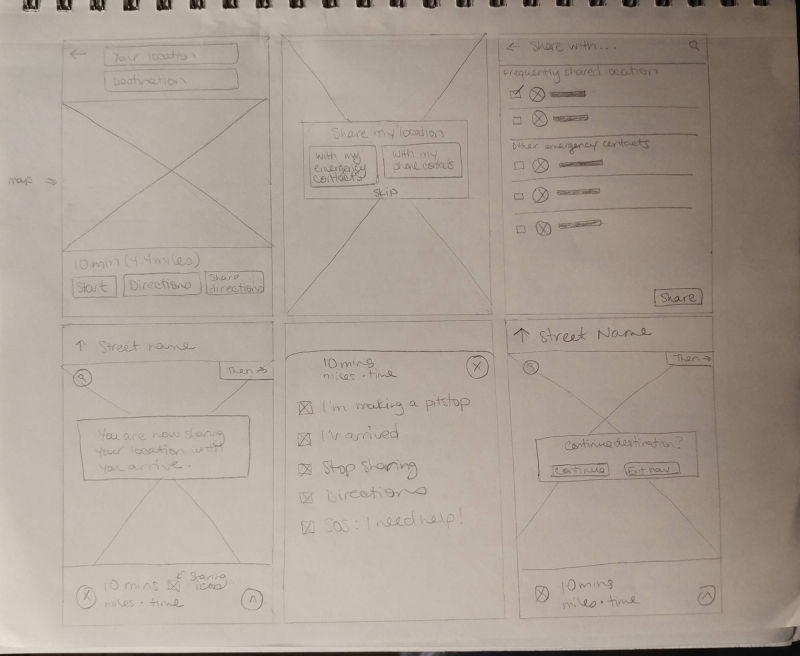 Your location
Destination
map →
10 min (4.4 miles)
Start
Directions
Share
directions
Share my location
with my
emergency
contacts
with my
phone contacts
Skip
← Share with...
Frequently shared location
Other emergency contacts
Share
↑ Street name
Then →
You are now sharing
your location until
you arrive.
X 10 mins
Sharing
icon
miles • time
10 mins
miles • time
X
I'm making a pitstop
I'v arrived
Stop Sharing
Directions
SOS: I need help!
↑ Street Name
Then →
Continue destination?
Continue
Exit nav
10 mins
miles • time